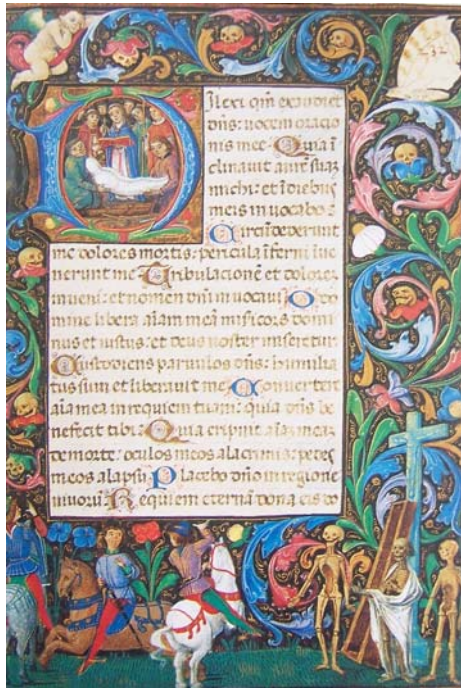 Dilexi qm̄ exaudiet
dn̄s: vocem oracio
nis mee. Quia ī
clinavit aurē suaz
michi: et ī diebus
meis invocabo:
Circūdederunt
me dolores mortis: pericula īferni īue
nerunt me. Tribulacionē et dolorē
inveni: et nomen dn̄i invocavi. O do
mine libera aīam meā misicors domi
nus et iustus: et deus noster miseretur.
Custodiens parvulos dn̄s: humilia
tus sum et liberavit me. Convertere
aīa mea in requiem tuam: quia dn̄s be
nefecit tibi. Quia eripuit aīaz meaz
de morte: oculos meos a lacrimis: pedes
meos a lapsu. Placebo dn̄o in regione
vivorū. Requiem eternā dona eis do
232